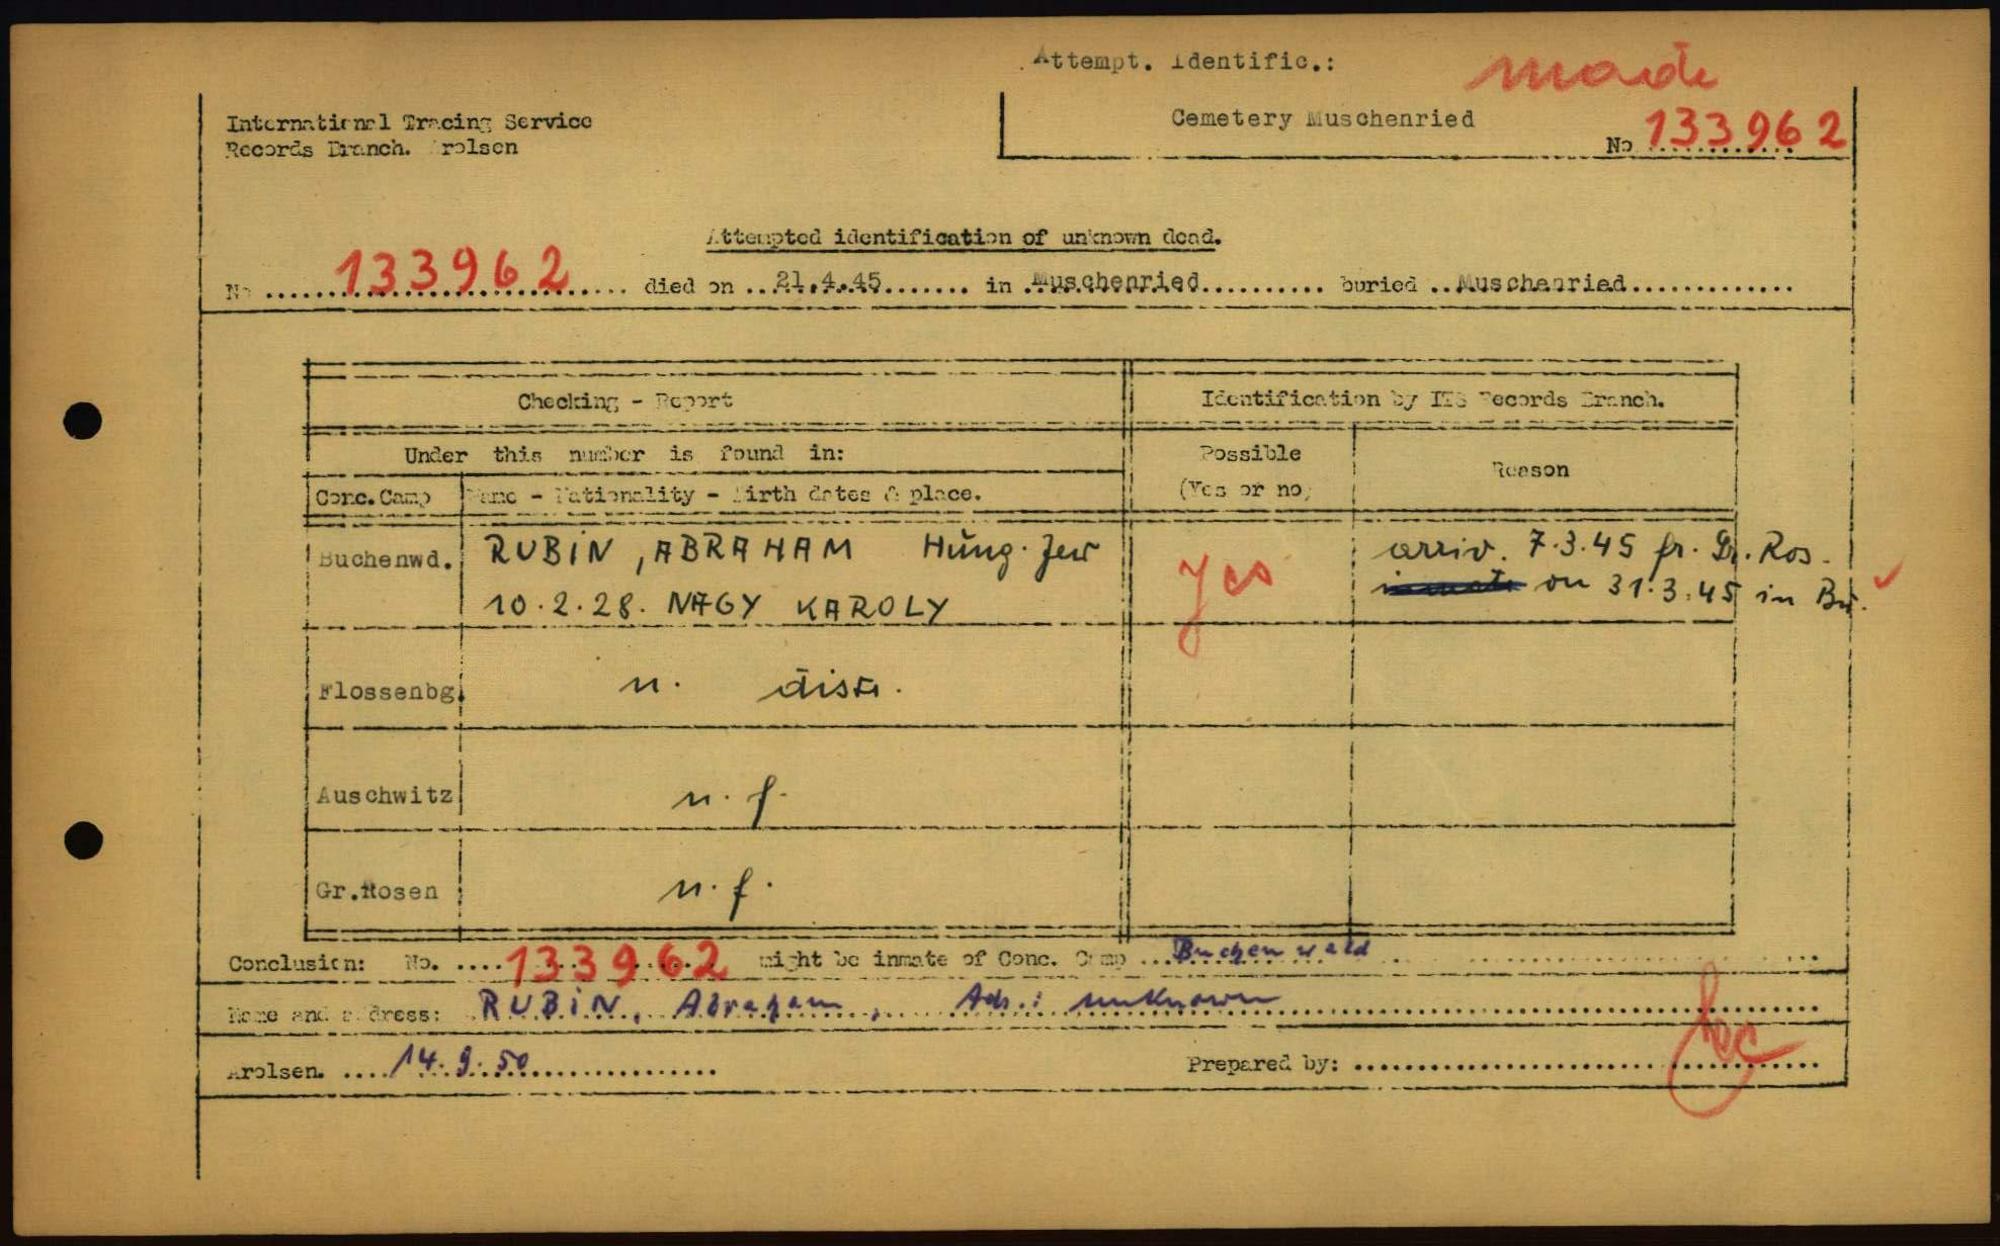 Attempt. Identific.: made
Cemetery Muschenried
No 133962
International Tracing Service
Records Branch. Arolsen
Attempted identification of unknown dead.
No ........ 133962 ........ died on ...21.4.45....... in .Muschenried.......... buried ..Muschenried.............
Checking - Report
Identification by ITS Records Branch.
Under this number is found in:
Possible
(Yes or no)
Reason
Conc.Camp
Name - Nationality - Birth dates & place.
Buchenwd. RUBIN, ABRAHAM Hung. Jew yes arriv. 7.3.45 fr. Gr. Ros.
10.2.28. NAGY KAROLY on 31.3.45 in Bu.
Flossenbg. n. distr.
Auschwitz n. f.
Gr.Rosen n. f.
Conclusion: No. ....133962 might be inmate of Conc. Camp ...Buchenwald
Name and address: RUBIN, Abraham, Adr.: unknown
Arolsen. ....14.9.50
Prepared by: